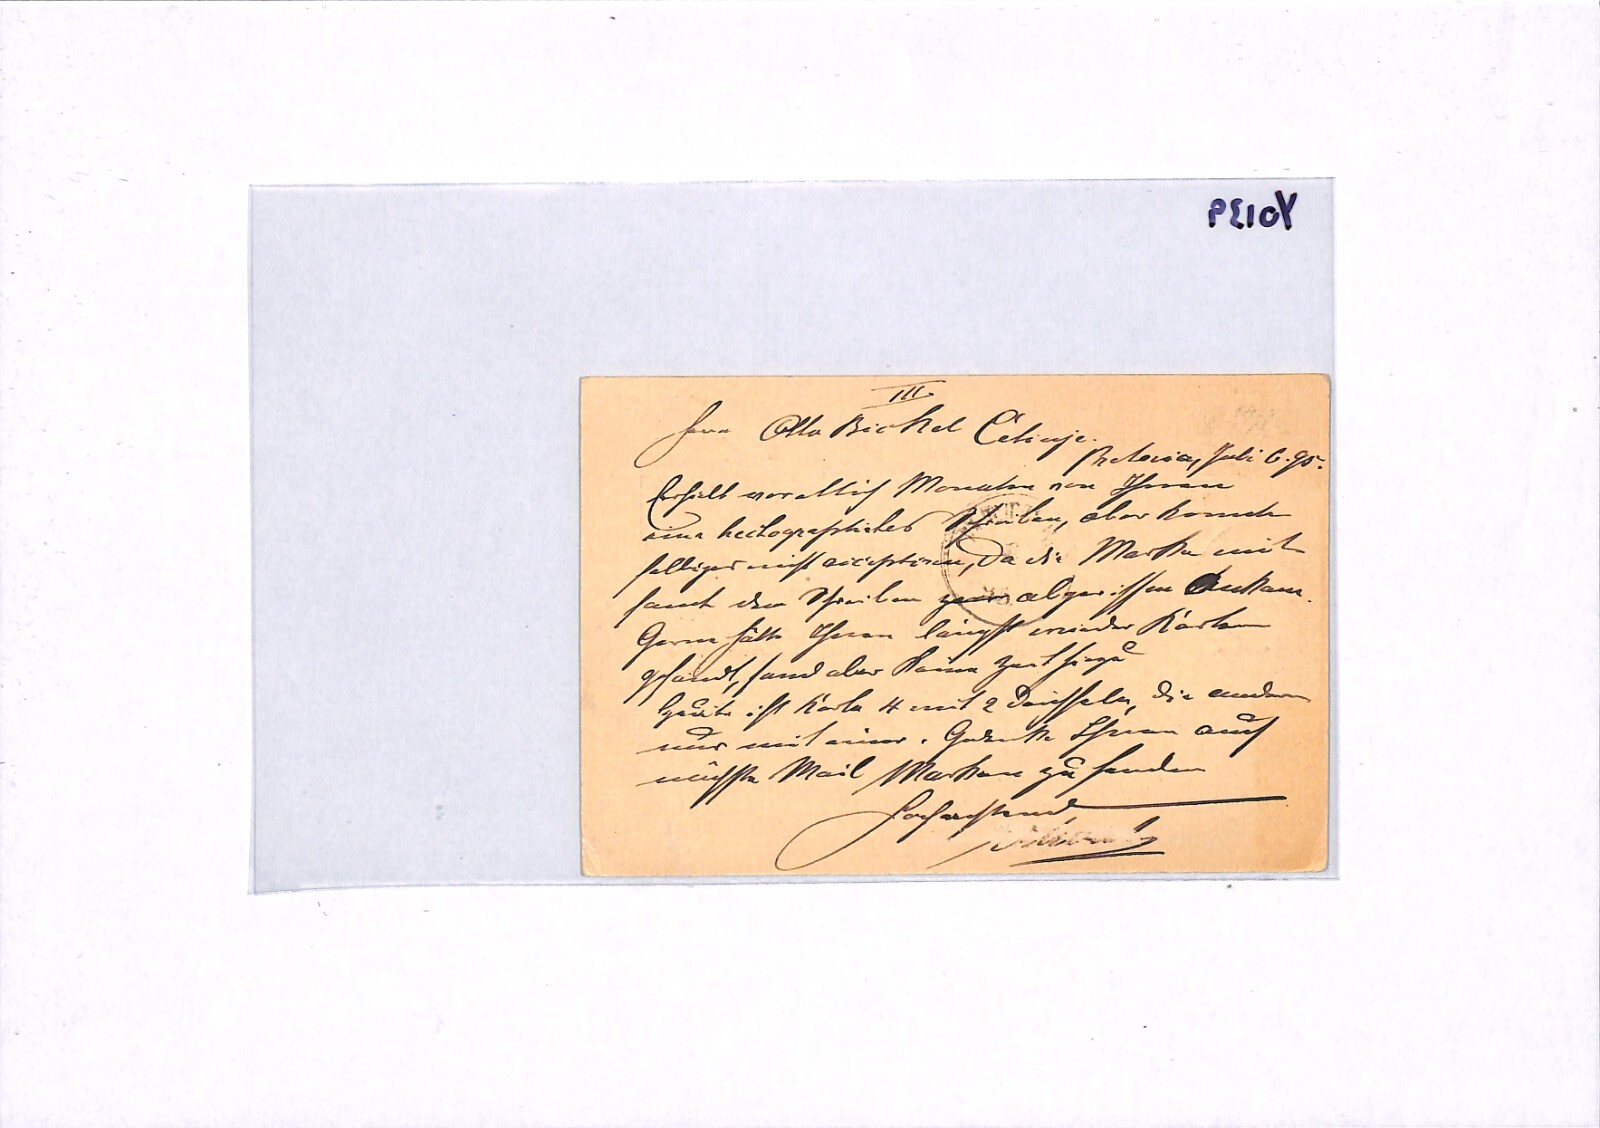 YO139
III
Herrn Otto Bickel Cetinje.
Pretoria, Juli 6. 95.
Erhielt vor etlich Monaten von Ihnen
ein hectographirtes Schreiben, aber konnte
selbiges nicht acceptiren, da die Marke mit
samt dem Schreiben abgerissen ankam.
Gerne hätte Ihnen längst wieder Karten
gesandt, fand aber keine Zeit hiezu
Heute ist Karte 4 mit 2 Deichseln, die andern
nur mit einer. Gedenke Ihnen auf
nächste Mail Marken zu senden
Hochachtend